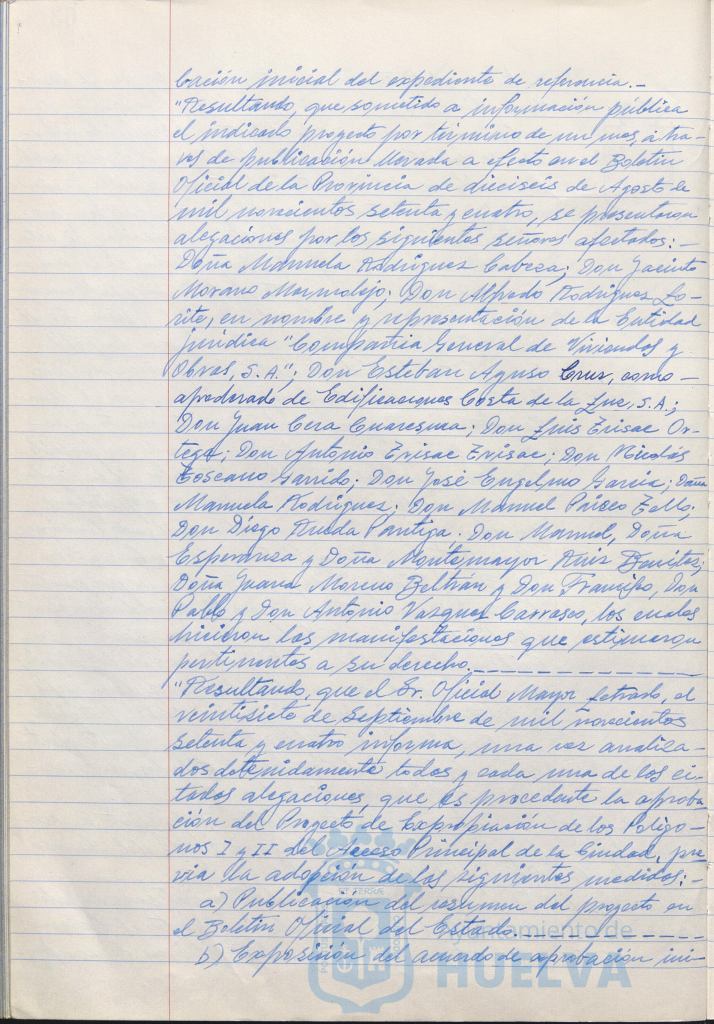 bación inicial del expediente de referencia.-
"Resultando, que sometido a información pública
el indicado proyecto por término de un mes, a tra-
vés de publicación llevada a efecto en el Boletín
Oficial de la Provincia de dieciseis de Agosto de
mil novecientos setenta y cuatro, se presentaron
alegaciones por los siguientes señores afectados:-
Doña Manuela Rodríguez Cabeza; Don Jacinto
Morano Marmolejo; Don Alfredo Rodríguez Lo-
rite, en nombre y representación de la Entidad
jurídica "Compañía General de Viviendas y
Obras, S.A."; Don Esteban Cruz, como -
apoderado de Edificaciones Costa de la Luz, S.A.;
Don Juan Cera Cuaresma; Don Luis Or-
tega; Don Antonio; Don Nicolás
Toscano Garrido; Don José Engelmo García; Doña
Manuela Rodríguez; Don Manuel Tello;
Don Diego Rueda Pantiga. Don Manuel, Doña
Esperanza y Doña Montemayor Ruiz Benítez;
Doña Juana Moreno Beltrán y Don Francisco, Don
Pablo y Don Antonio Vazquez Carrasco, los cuales
hicieron las manifestaciones que estimaron
pertinentes a su derecho.
"Resultando, que el Sr. Oficial Mayor Letrado, el
veintisiete de Septiembre de mil novecientos
setenta y cuatro informa, una vez analiza-
dos detenidamente todos y cada una de los ci-
tados alegaciones, que es procedente la aproba-
ción del Proyecto de Expropiación de los Polígo-
nos I y II del Acceso Principal de la Ciudad, pre-
via la adopción de las siguientes medidas:-
a) Publicación del resumen del proyecto en
el Boletín Oficial del Estado.
b) Exposición del acuerdo de aprobación ini-
Ayuntamiento de
HUELVA